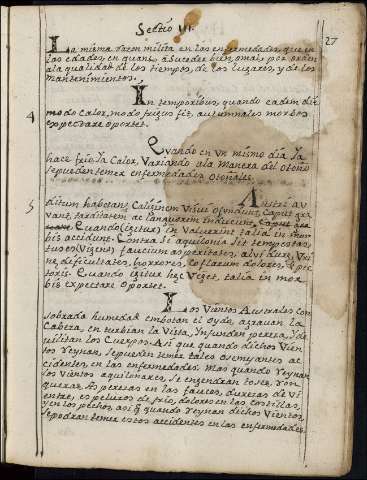 Sectio III.
27
La misma razon milita en las enfermedades, que en
las edades, en quanto â suceder bien, o mal, por orden
a la qualidad de los tiempos, de los lugares, y de los
mantenimientos.
4
In temporibus, quando eadem die
modo calor, modo frigus fit, autumnales morbos
expectare oportet.
Quando en un mismo dia, ya
hace frio, ya Calor, Variando a la Manera del otoño
se pueden temer enfermedades Otoñales
5
Austri au
ditum habetant Caliginem Visui offundunt, Caput gra
vant, tarditatem ac languorem inducunt,
Quando (igitur) in Valuerint talia in mor
bis accidunt. Contra si aquilonia sit tempestas,
tuses (Vigent) faucium asperitates, alvi durae, Uri
nae dificultates, horrores, Costarum dolores, & pec
toris. Quando igitur haec Viget, talia in mor
bis expectare oportet.
Los Vientos Australes con
sobrada humedad embotan el oydo, agravan la
Cabeza, en turbian la Vista, Ynfunden pereza, y de
vilitan los Cuerpos. Asi que quando dichos Vien
tos Reynan, se pueden temer tales o semejantes ac
cidentes, en las enfermedades. Mas quando Reynan
los Vientos aquilonares, se engendran toses, ron
queras, Asperezas en las fauces, durezas de Vi
entre, espeluzos de frio, dolores en las costillas,
y en los pechos, asi q quando Reynan dichos Vientos,
se podran temer estos accidentes en las enfermedades